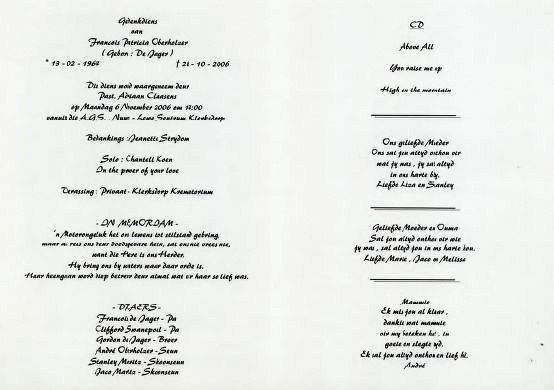 Gedenkdiens
van
Francois Patricia Oberholzer
( Gebore : De Jager )
* 13 - 02 - 1964 † 21 - 10 - 2006
Die diens word waargeneem deur
Past. Adriaan Claasens
op Maandag 6 November 2006 om 13:00
vanuit die A.G.S. : Nuwe - Lewe Sentrum Klerksdorp
Bedankings : Jeanette Strydom
Solo : Chantell Koen
In the power of your love
Verassing : Privaat - Klerksdorp Krematorium
- IN MEMORIAM -
'n Motorongeluk het on lewens tot stilstand gebring,
want die Here is ons Herder.
Hy bring ons by waters waar daar orde is.
Haar heengaan word diep betreur deur almal wat vir haar so lief was.
- DRAERS -
Francois de Jager - Pa
Clifford Swanepoel - Pa
Gordon de Jager - Broer
André Oberholzer - Seun
Stanley Moritz - Skoonseun
Jaco Maritz - Skoonseun
CD
Above All
You raise me up
High on the mountain
Ons geliefde Moeder
Ons sal jou altyd onthou vir
wat jy was , jy sal altyd
in ons harte bly.
Liefde Liza en Stanley
Geliefde Moeder en Ouma
Sal jou altyd onthou vir wie
jy was , sal altyd jou in ons harte hou.
Liefde Marie , Jaco en Melisse
Mammie
Ek mis jou al klaar ,
dankie wat mammie
vir my beteken het , in
goeie en slegte tyd.
Ek sal jou altyd onthou en lief hê.
André